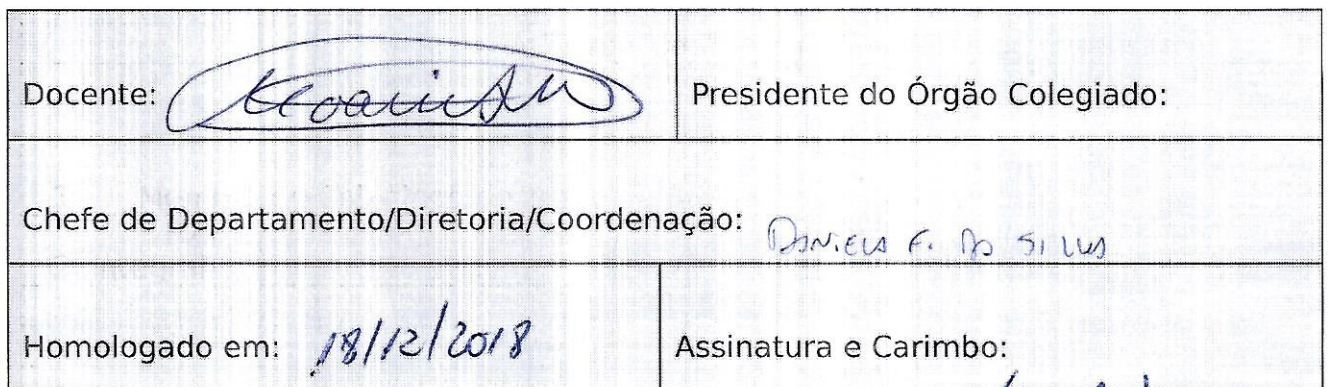 Docente: Presidente do Órgão Colegiado:
Chefe de Departamento/Diretoria/Coordenação: DANIELA F. DA SILVA
Homologado em: 18/12/2018 Assinatura e Carimbo: